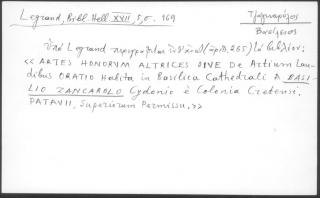 Legrand, Bibl. Hell XXII, 5, σ. 169
Τζαγκαρόλος
Βασίλειος
Ὑπὸ Legrand περιγράφεται (ἀριθ. 265) τὸ βιβλίον:
«ARTES HONORVM ALTRICES SIVE De Artium Lau-
dibus ORATIO Habita in Basilica Cathedrali A BASI-
LIO ZANCAROLO Cydonio è Colonia Cretensi.
PATAVII, Superiorum Permissu.»